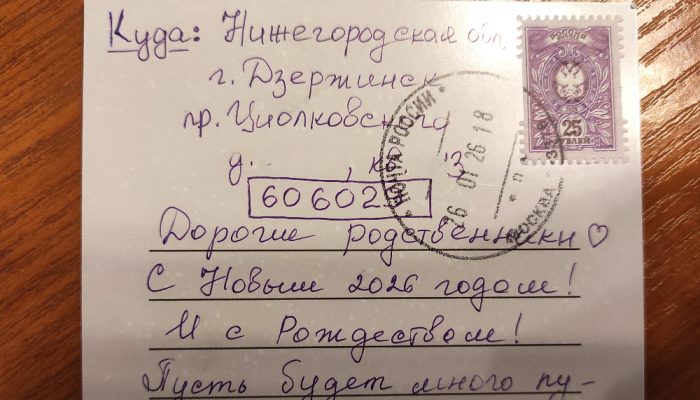 Куда: Нижегородская обл,
г. Дзержинск
пр. Циолковского
д.
60602
Дорогие родственники♡
С Новым 2026 годом!
И с Рождеством!
Пусть будет много пу-
25
РУБЛЕЙ
ПОЧТА РОССИИ
МОСКВА
01 26 18